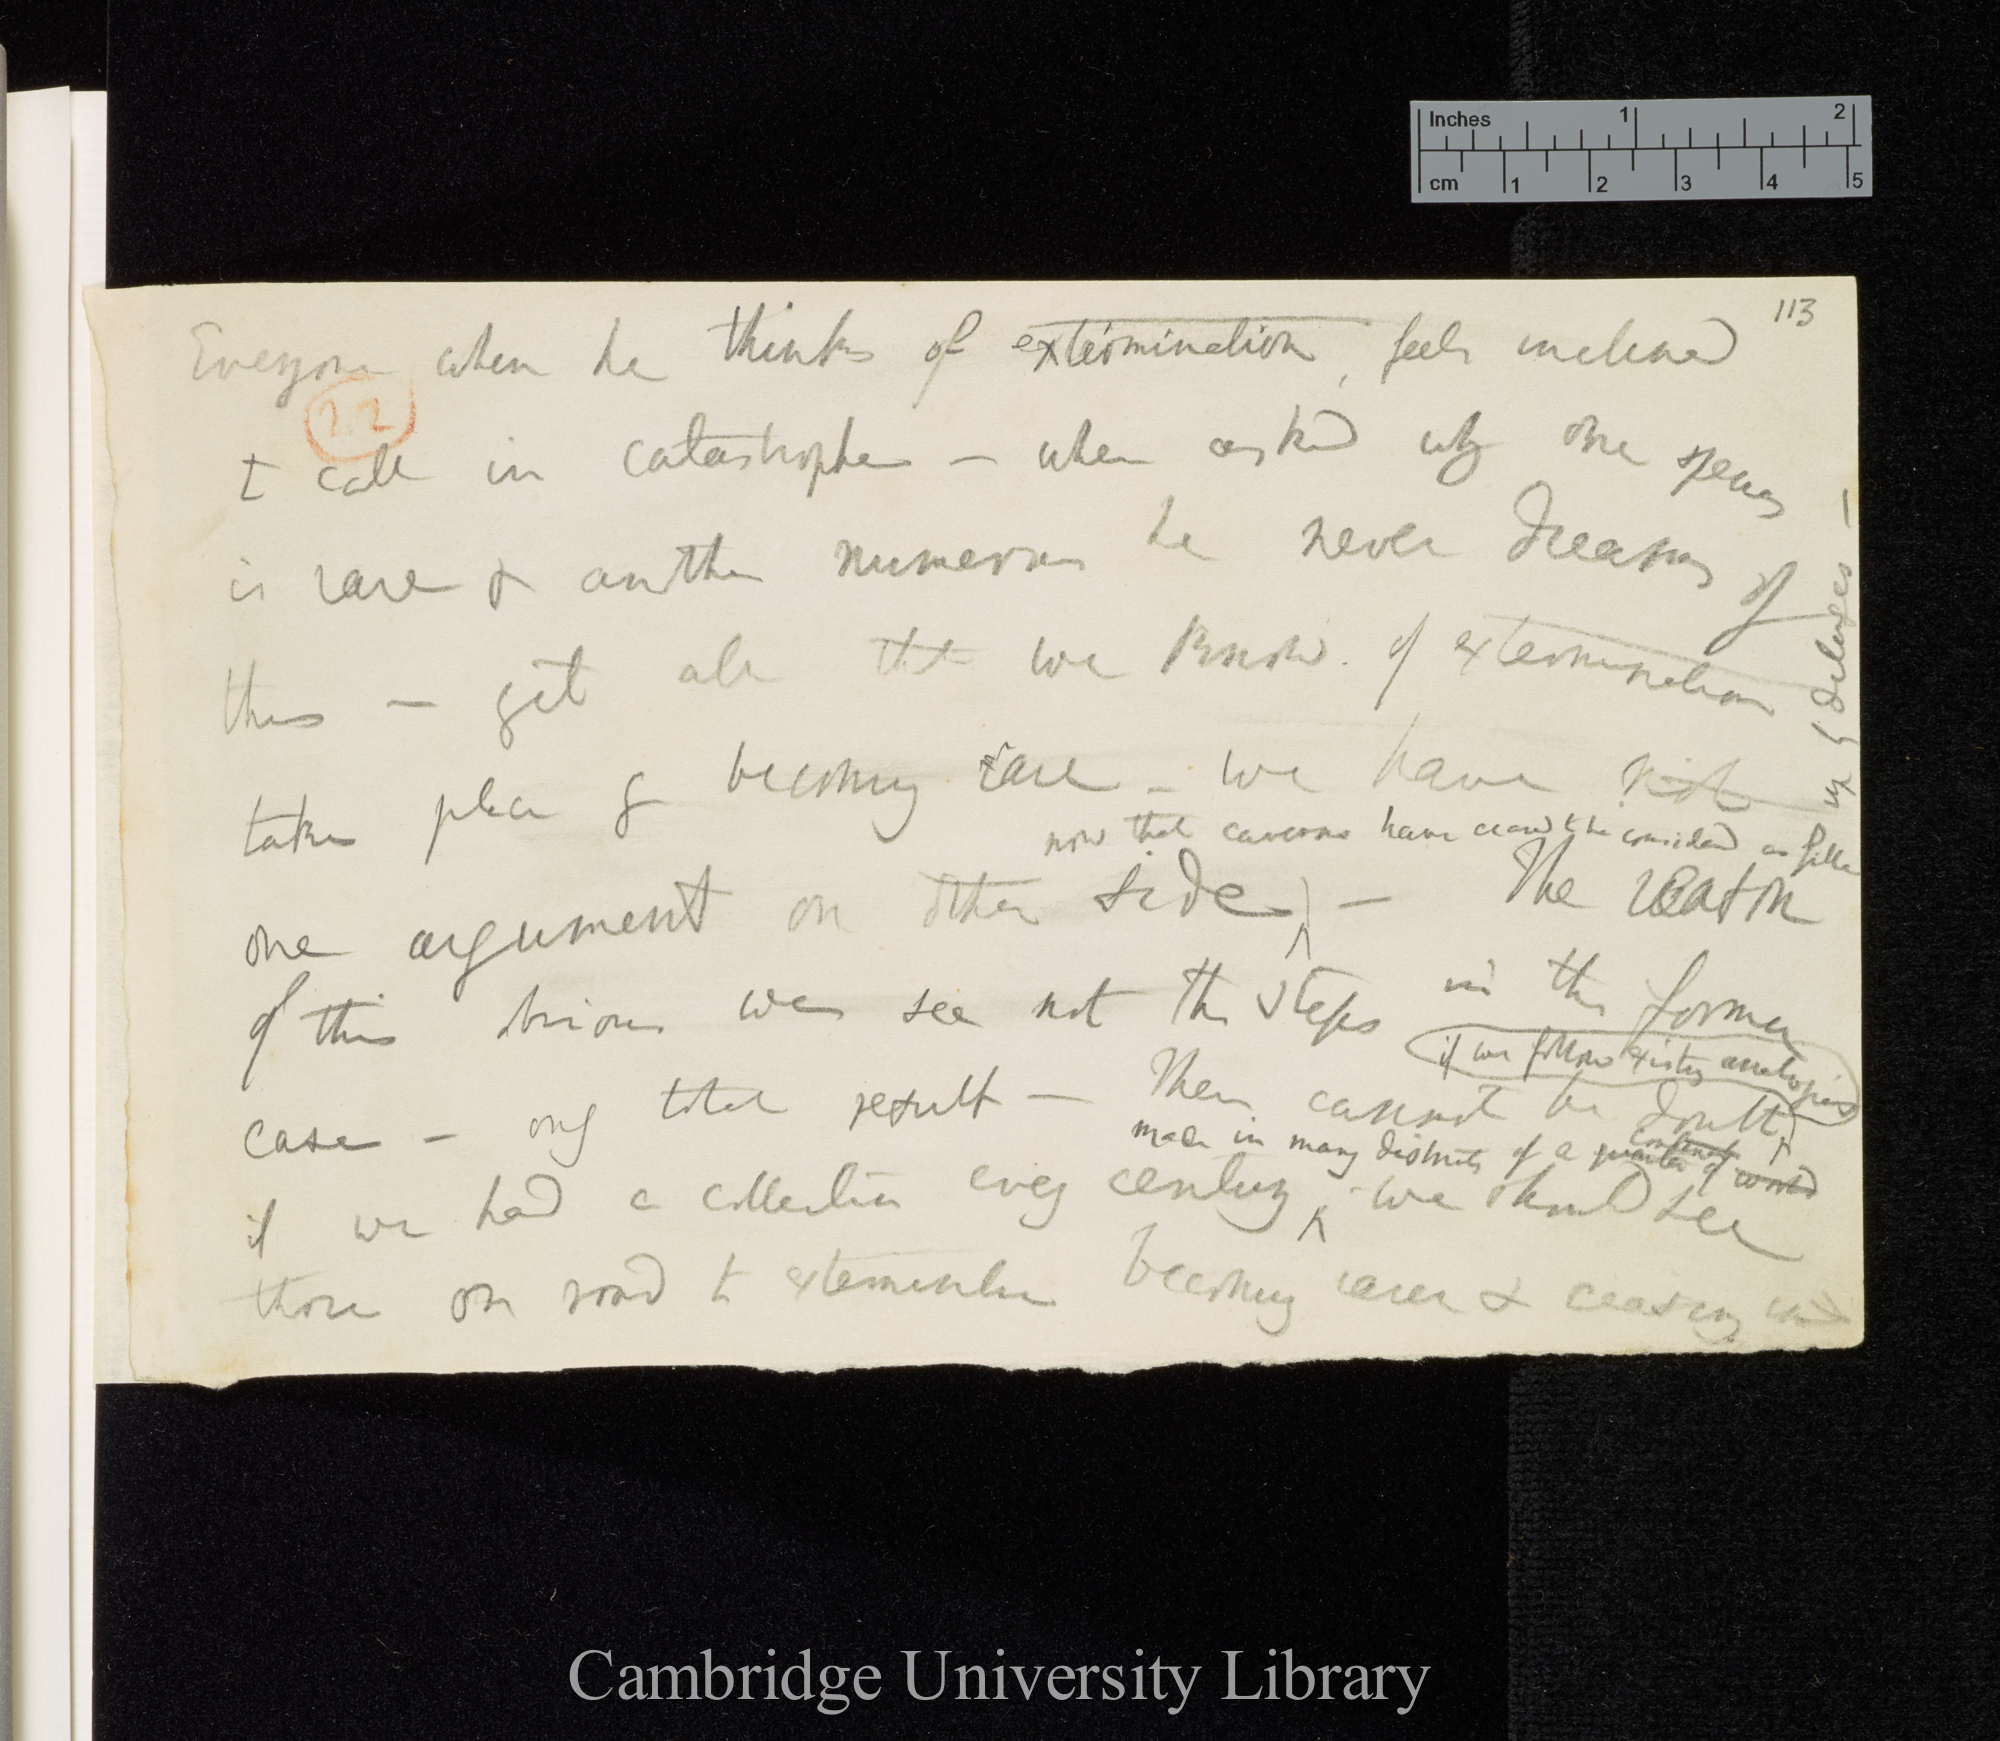 113
Everyone when he thinks of extermination, feels inclined
22
to call in catastrophes — when asked why one species
is rare & another numerous he never dreams of
this — yet all that we know. of extermination
takes place by becoming rare — we have not
now that caverns have ceased to be considered as filled
up by deluges —
one argument on other side — The reason
of this obvious we see not the steps in the former
if we follow existing analogies
case — only total result — There cannot be doubt
made in many districts of a quarter of world
if we had a collection every century, we should see
those on road to extermination becoming rarer & ceasing
Inches 1 2
cm 1 2 3 4 5
Cambridge University Library